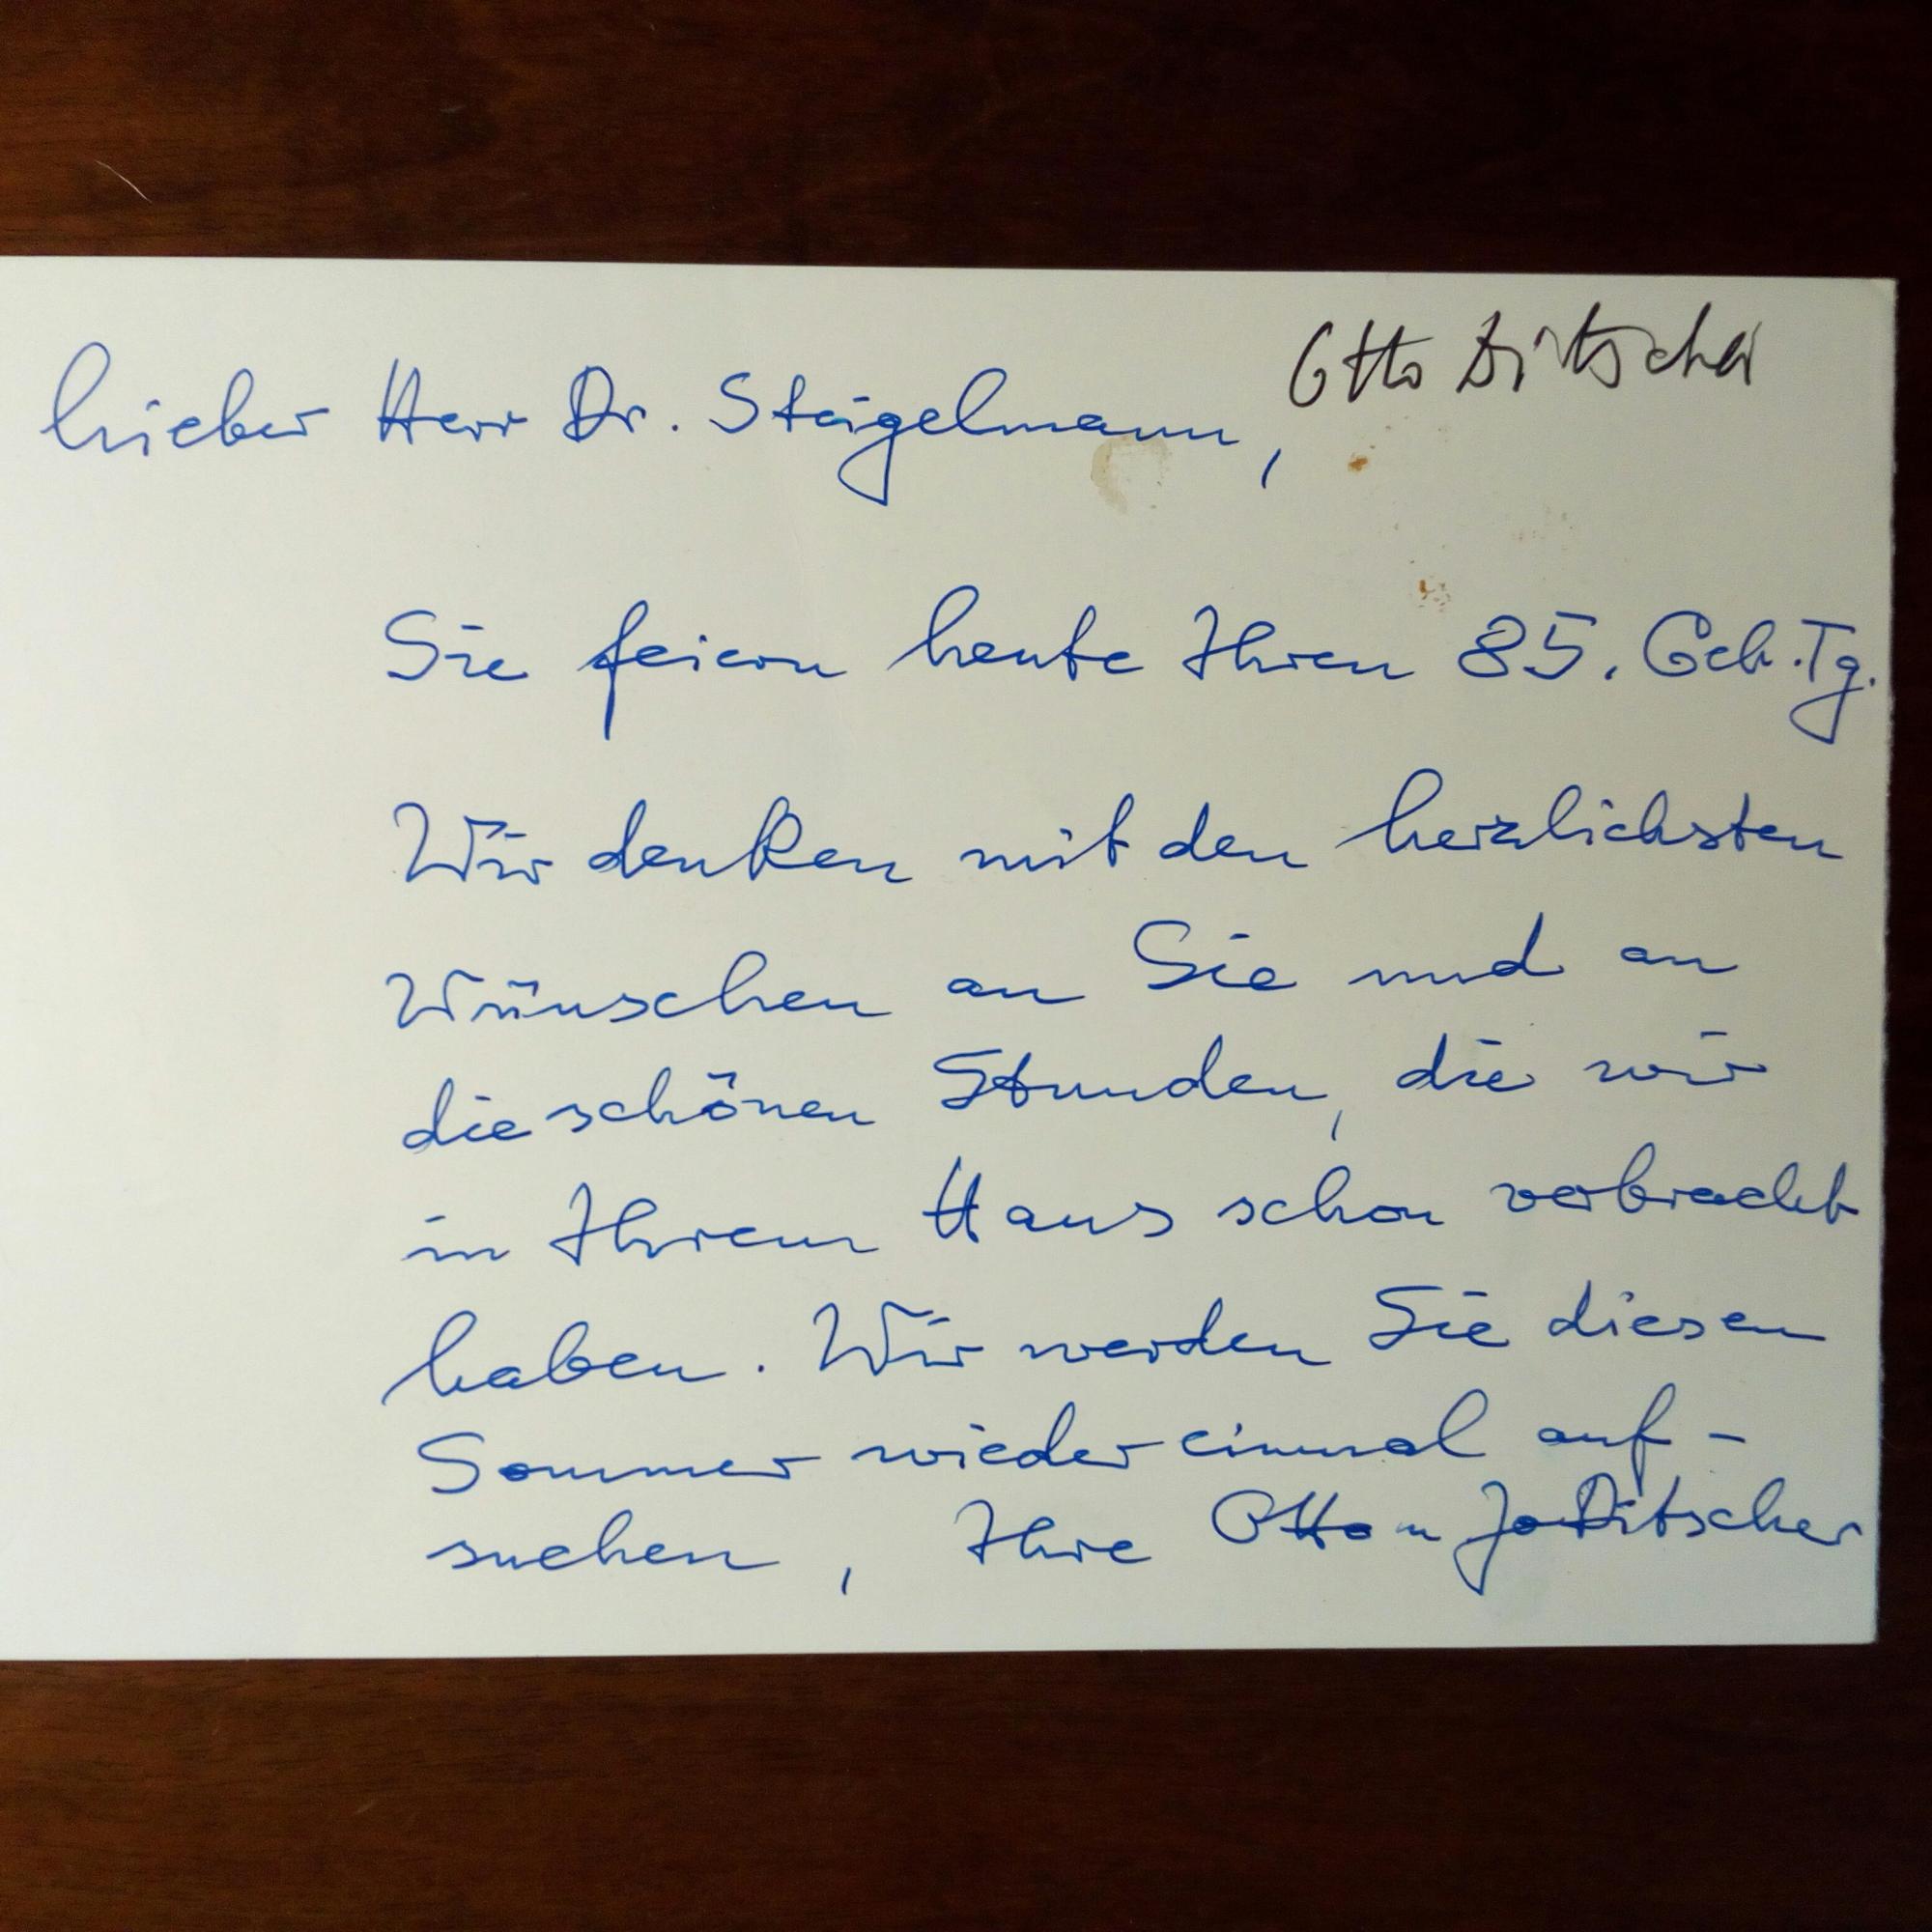 Otto Ditscher
Lieber Herr Dr. Steigelmann,
Sie feiern heute Ihren 85. Geb.Tg.
Wir denken mit den herzlichsten
Wünschen an Sie und an
die schönen Stunden, die wir
in Ihrem Haus schon verbracht
haben. Wir werden Sie diesen
Sommer wieder einmal auf-
suchen, Ihre Otto u Jo Ditscher